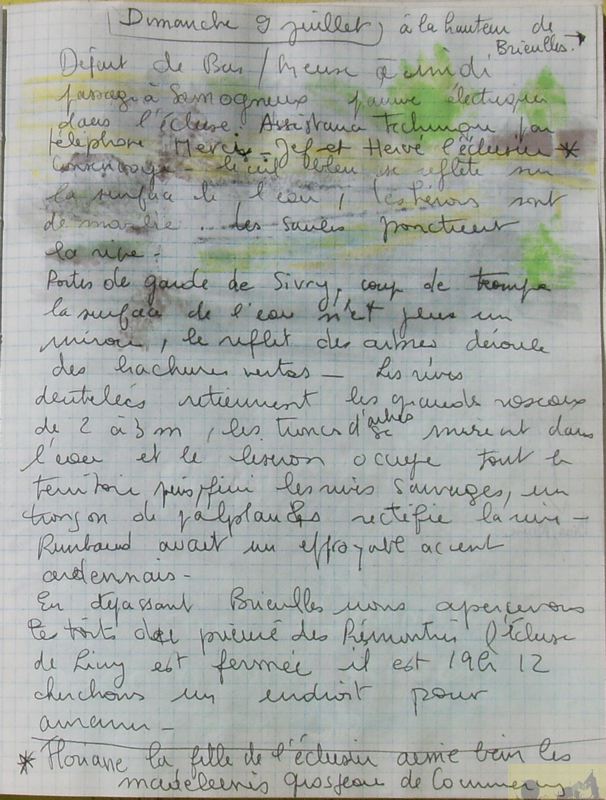 Dimanche 9 juillet, à la hauteur de
Brieulles.
Départ de Bras / Meuse à midi
passage à Samogneux panne électrique
dans l'écluse. Assistance technique par
téléphone Merci Jef et Hervé l'éclusier *
Consenvoye - le ciel bleu se reflète sur
la surface de l'eau, les hérons sont
de marbre .. les saules ponctuent
la rive -
Portes de garde de Sivry, coup de trompe
la surface de l'eau n'est plus un
miroir, le reflet des arbres déroule
des hachures vertes - Les rives
dentelées retiennent les grands roseaux
de 2 à 3 m, les troncs d'arbres se mirent dans
l'eau et le liseron occupe tout le
territoire, puis, fini les rives sauvages, un
tronçon de palplanches rectifie la rive -
Rimbaud avait un effroyable accent
ardennais -
En dépassant Brieulles nous apercevons
les toits du prieuré des Prémontrés l'écluse
de Liny est fermée il est 19h 12
cherchons un endroit pour
amarrer -
* Floriane la fille de l'éclusier aime bien les
madeleines de Commercy